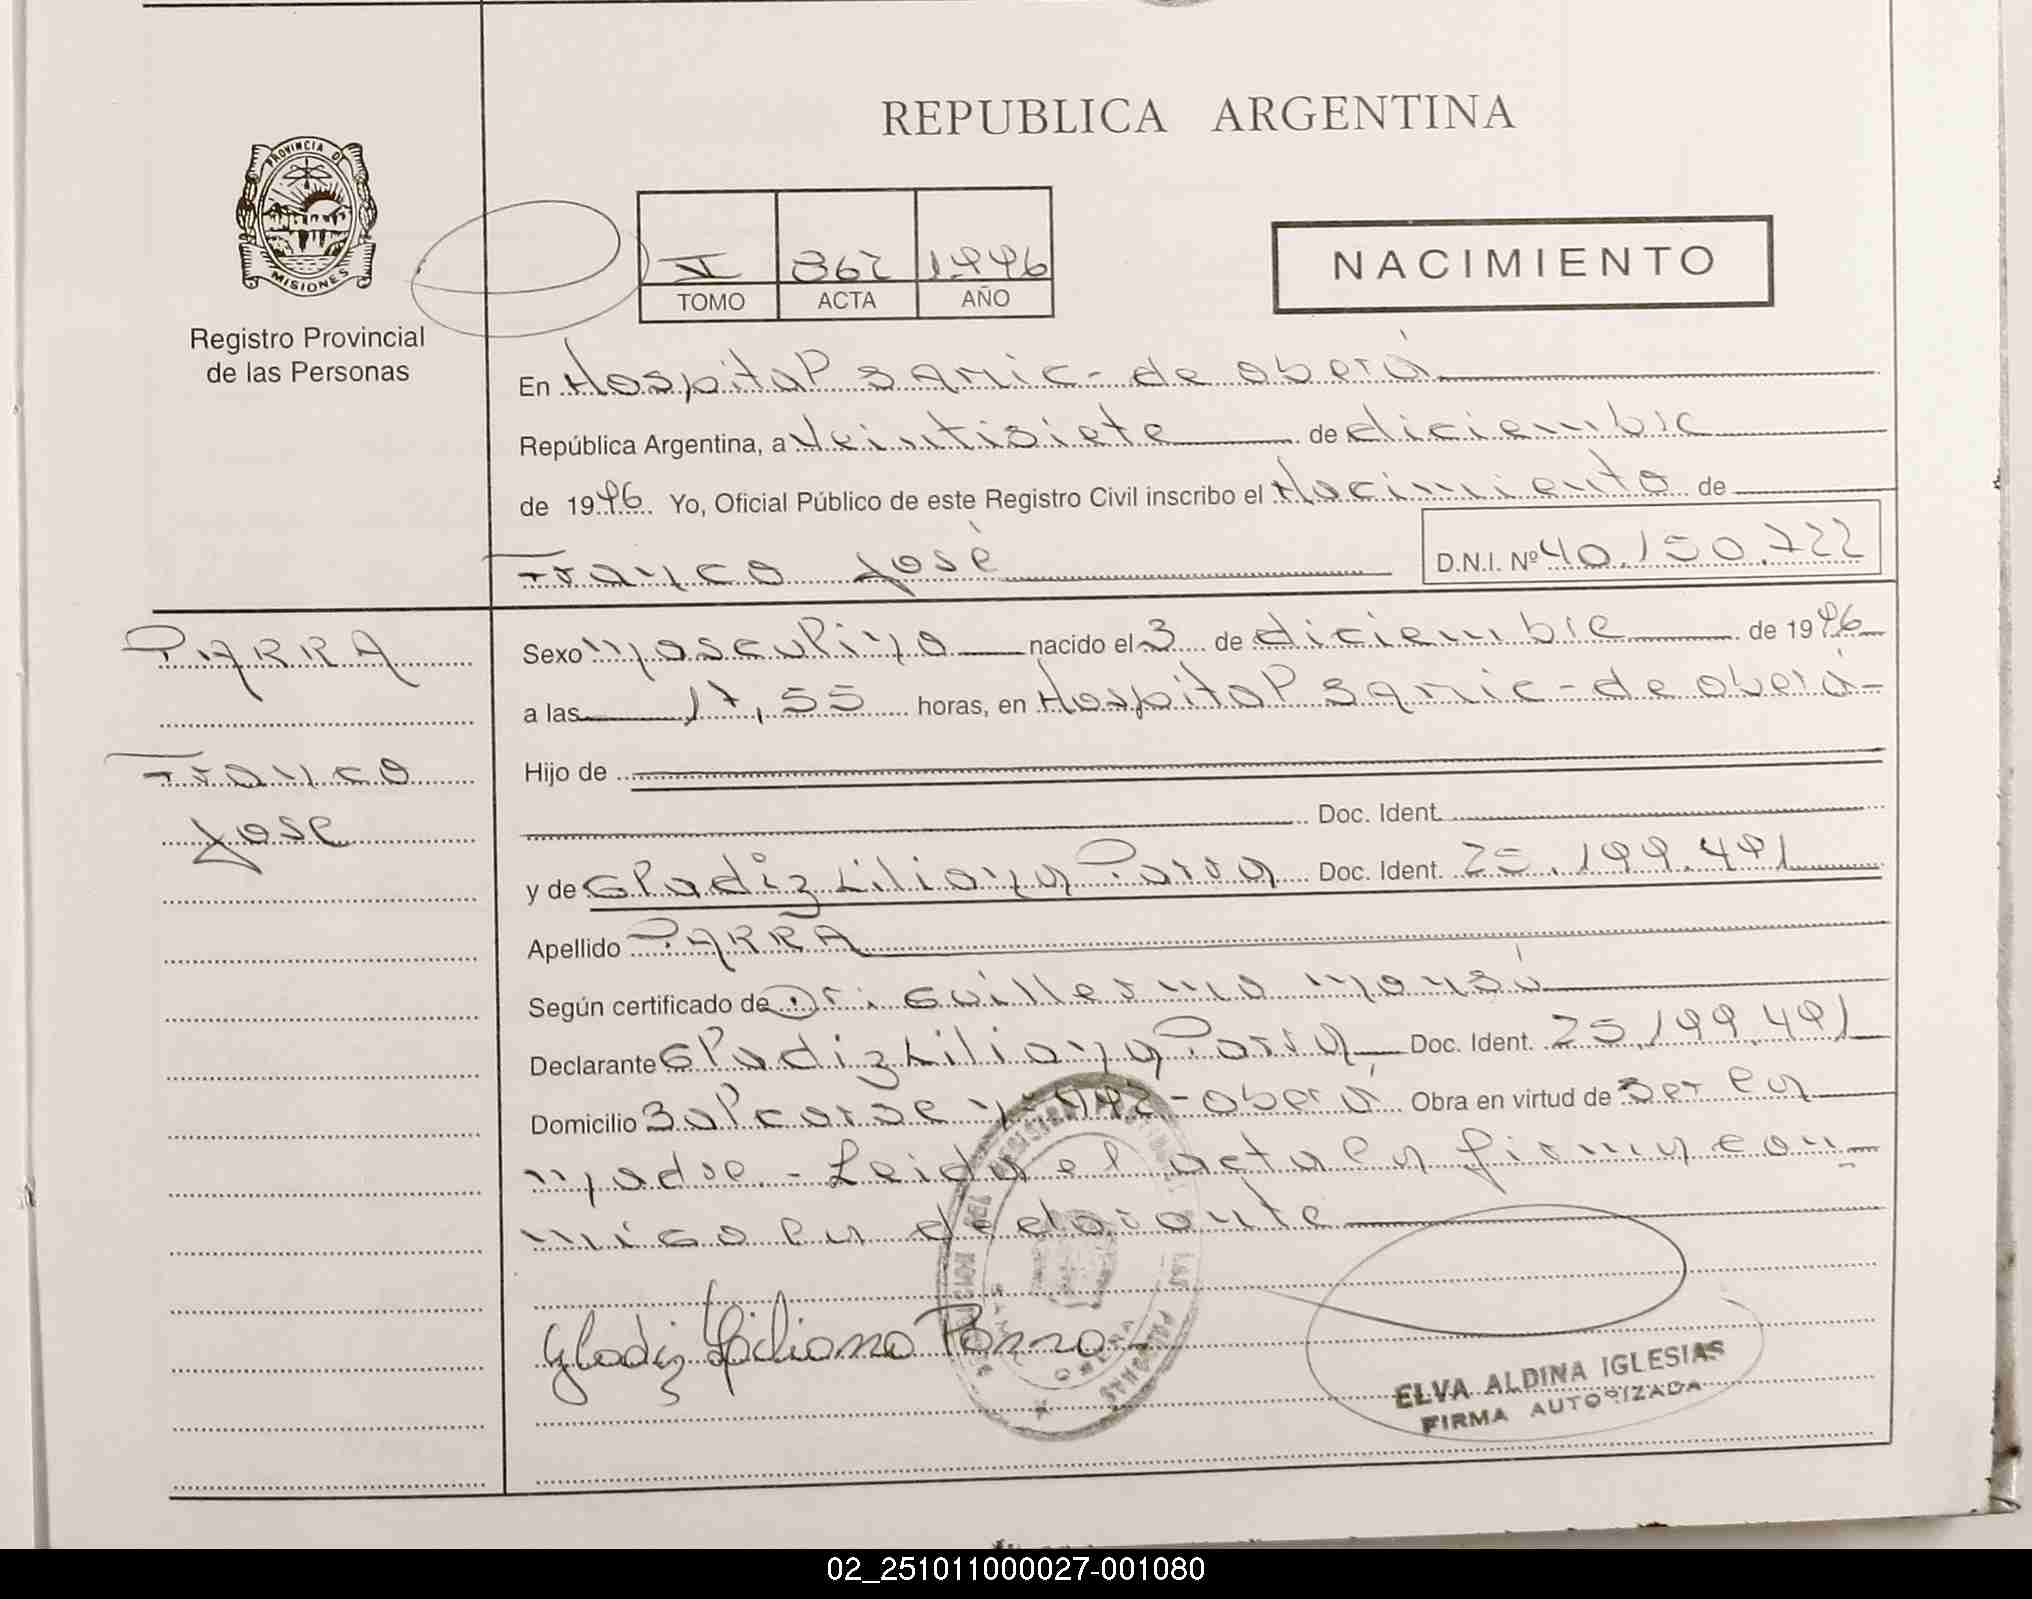 REPUBLICA ARGENTINA
PROVINCIA DE MISIONES
Registro Provincial
de las Personas
V 867 1996
TOMO ACTA AÑO
NACIMIENTO
En Hospital Samic - de oberá
República Argentina, a Veintisiete de diciembre
de 1996 Yo, Oficial Público de este Registro Civil inscribo el Nacimiento de
Franco José
D.N.I. Nº 40.150.722
PARRA
Franco
José
Sexo Masculino nacido el 3 de diciembre de 1996
a las 17,55 horas, en Hospital Samic - de oberá -
Hijo de
Doc. Ident.
y de Gladiz Liliana Parra Doc. Ident. 25.199.491
Apellido PARRA
Según certificado de Dr: Guillermo
Declarante Gladiz Liliana Parra Doc. Ident. 25.199.491
Domicilio Balcarse Nº 992 - oberá Obra en virtud de Ser la
madre. - Leida el acta la firma con-
migo la declarante
Gladiz Liliana Parra
ELVA ALDINA IGLESIAS
FIRMA AUTORIZADA
02_251011000027-001080